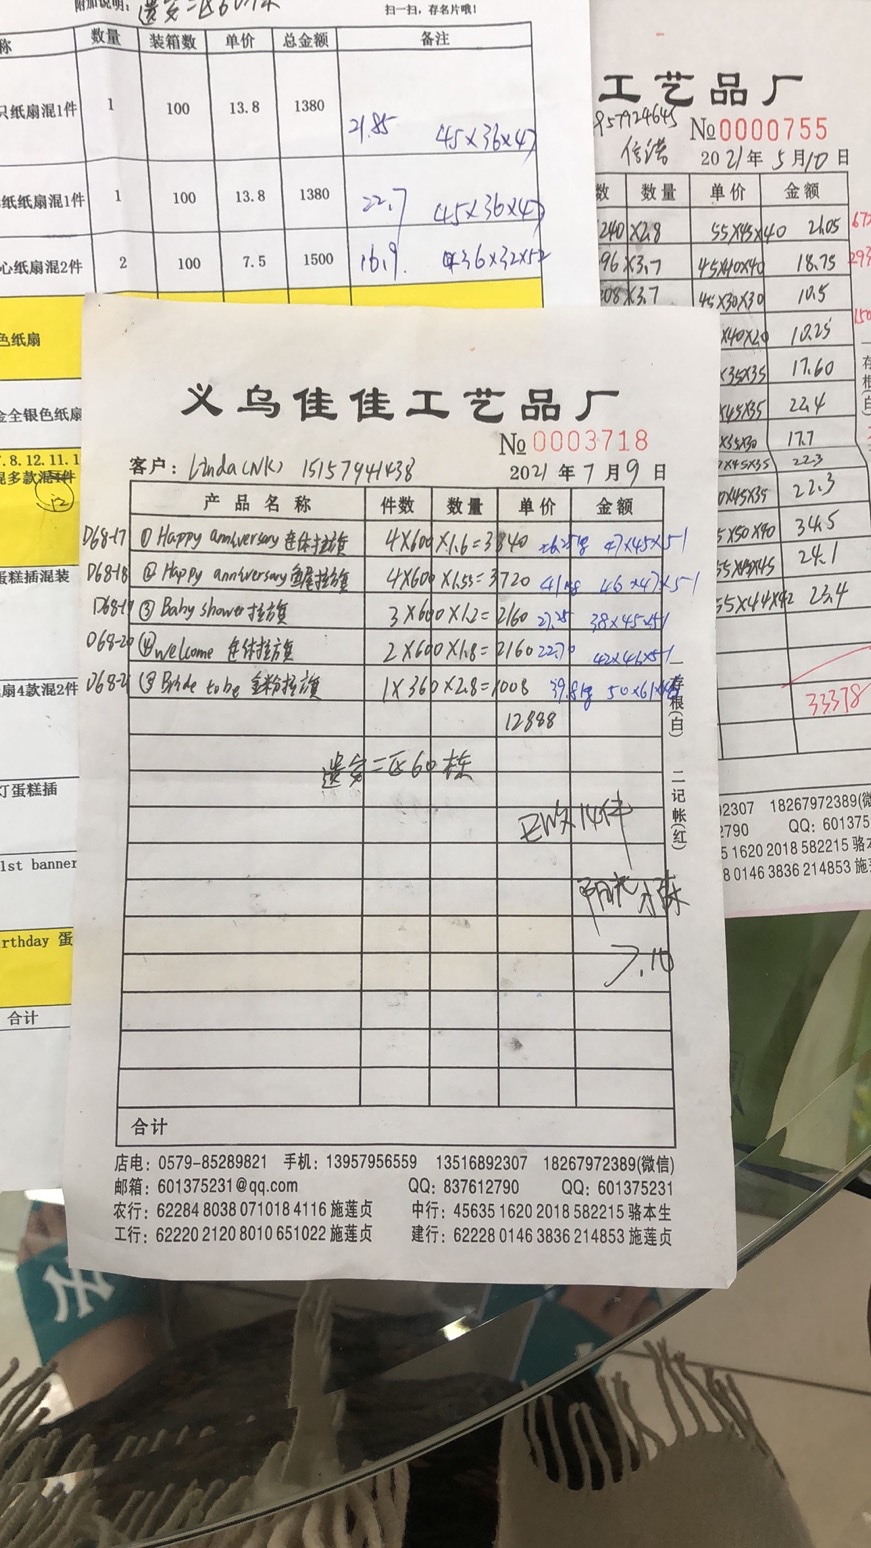 扫一扫，存名片哦！
数量 装箱数 单价 总金额 备注
只纸扇混1件 1 100 13.8 1380 21.85 45X36X47
纸纸扇混1件 1 100 13.8 1380 22.7 45X36X47
心纸扇混2件 2 100 7.5 1500 16.9 36X32X52
色纸扇
金全银色纸扇
7.8.12.11.1
混多款
12
蛋糕插混装
扇4款混2件
灯蛋糕插
1st banner
rthday 蛋
合计
工艺品厂
№0000755
2021年5月10日
数 数量 单价 金额
240X2.8 55X45X40
96X3.7 45X40X40 18.75
208X3.7 45X30X30 10.5
X40X20 10.25
X35X35 17.60
X45X35 22.4
X35X30 17.7
X45X35 22.3
0X45X35 22.3
5X50X40 34.5
24.1
55X44X42 23.4
33378
92307 18267972389(微
2790 QQ: 601375
5 1620 2018 582215 骆本
8 0146 3836 214853 施
义乌佳佳工艺品厂
№ 0003718
客户: Linda(NK) 15157941438 2021年7月9日
产品名称 件数 数量 单价 金额
D68-17 ① Happy anniversary 连体拉旗 4X600X1.6=3840 47X45X51
D68-18 ② Happy anniversary 鱼尾拉旗 4X600X1.55=3720 41kg 46X47X51
D68-19 ③ Baby shower 拉旗 3X600X1.2=2160 27.25 38X45X51
D68-20 ④ welcome 连体拉旗 2X600X1.8=2160 22.70 42X46X51
D68-2 ⑤ Bride to be 金粉拉旗 1X360X2.8=1008 39.8kg 50X61X
12888
遗安二区60栋
已收14件
7.10
一存根(白) 二记帐(红)
合计
店电: 0579-85289821 手机: 13957956559 13516892307 18267972389(微信)
邮箱: 601375231@qq.com QQ: 837612790 QQ: 601375231
农行: 62284 8038 071018 4116 施莲贞 中行: 45635 1620 2018 582215 骆本生
工行: 62220 2120 8010 651022 施莲贞 建行: 62228 0146 3836 214853 施莲贞